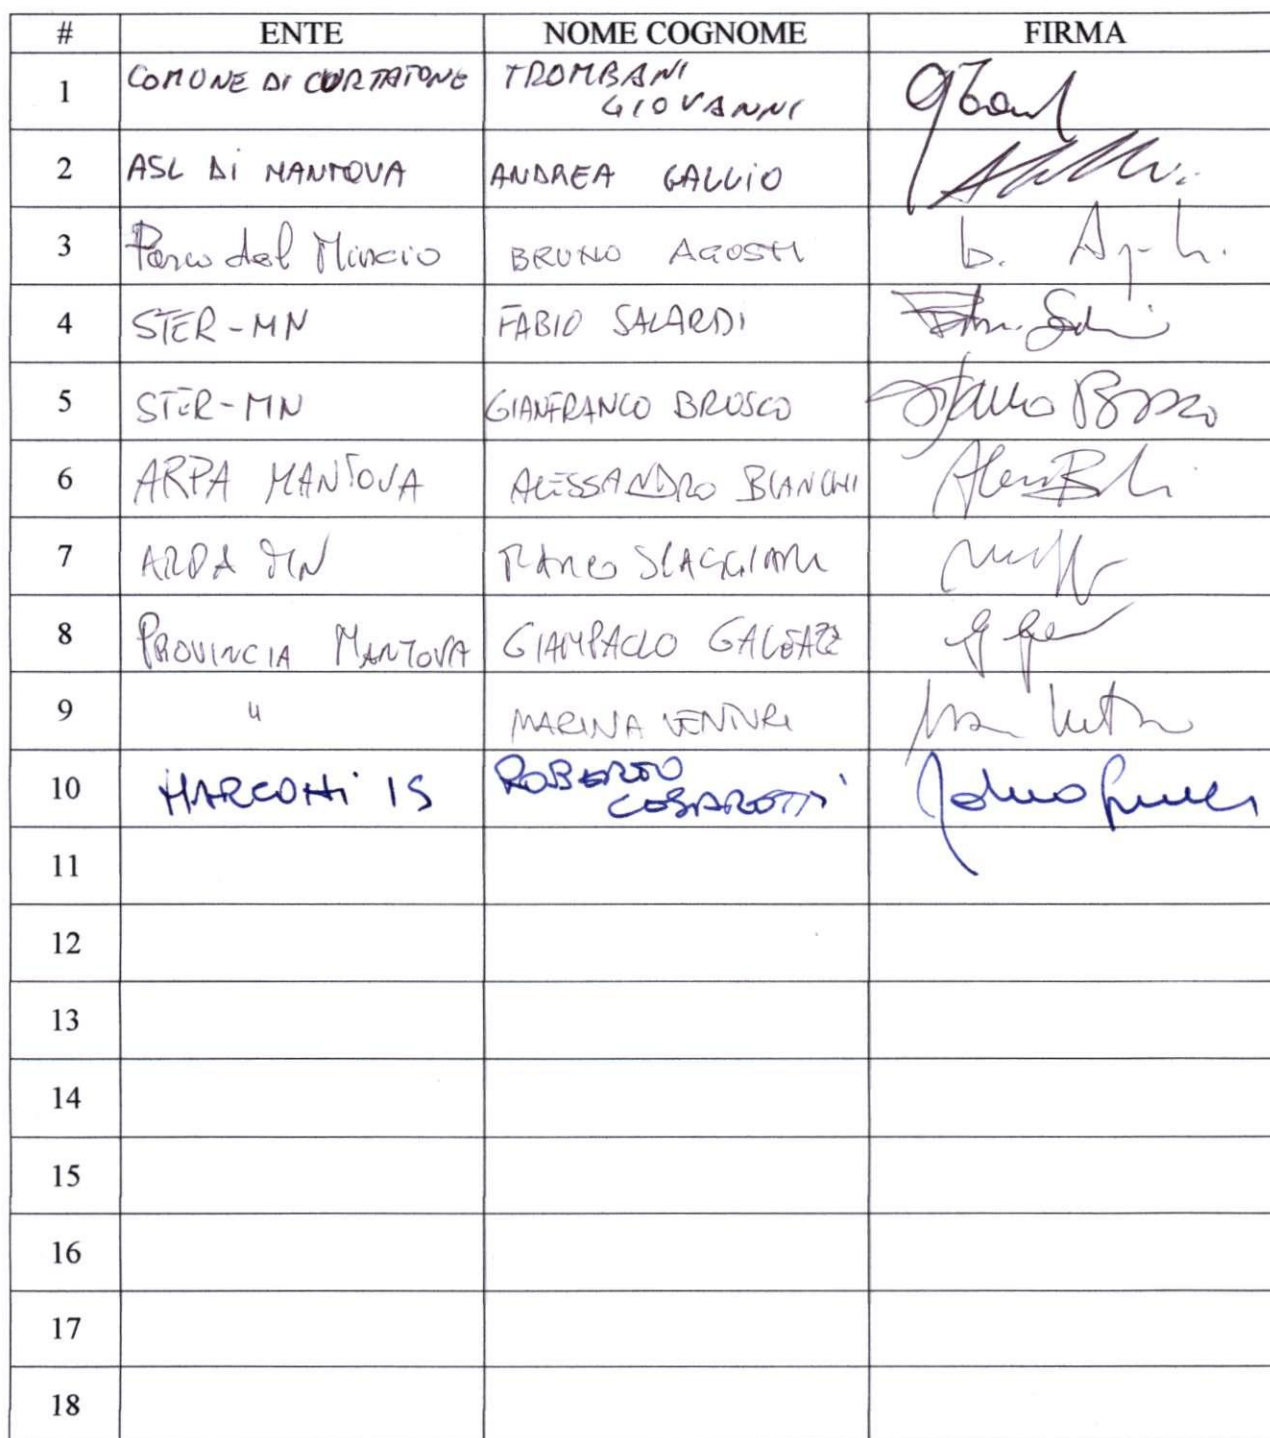 # ENTE NOME COGNOME FIRMA
1 COMUNE DI CURTATONE TROMBANI
GIOVANNI
2 ASL DI MANTOVA ANDREA GALLIO
3 Parco del Mincio BRUNO AGOSTI b.
4 STER-MN FABIO SALARDI
5 STER-MN GIANFRANCO BRUSCO
6 ARPA MANTOVA ALESSANDRO BIANCHI
7 ARPA MN MARCO
8 PROVINCIA MANTOVA GIAMPAOLO
9 " MARINA VENTURI
10 MARCONI IS ROBERTO
11
12
13
14
15
16
17
18